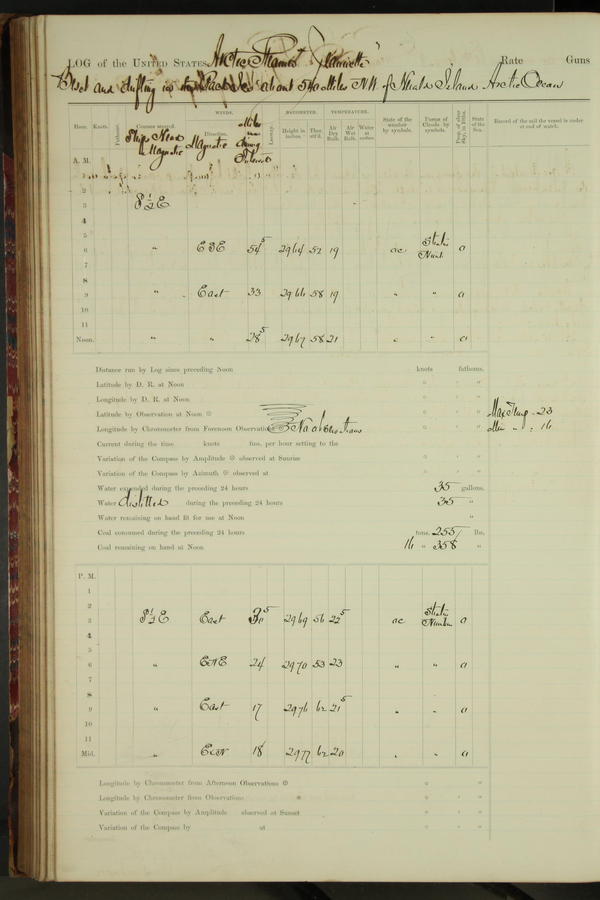 LOG of the UNITED STATES Arctic Steamer "Jeannette" Rate Guns
Beset and drifting in the Pack Ice about 540 Miles NW of Island Arctic Ocean
WINDS. BAROMETER. TEMPERATURE.
Hour. Knots. Fathoms. Courses steered. Direction. Leeway. Height in inches. Ther. att'd. Air Dry Bulb. Air Wet Bulb. Water at surface. State of the weather by symbols. Forms of Clouds by symbols. State of the Sea. Record of the sail the vessel is under at end of watch.
Ship's Head Magnetic Magnetic Miles during
A. M.
1
2
3 S ½ E
4
5
6 " ESE 54⁵ 29 64 52 19 oc Stratus Nimb o
7
8
9 " East 33 29 66 58 19 " " o
10
11
Noon. " " 28⁵ 29 67 58 21 " " o
Distance run by Log since preceding Noon knots fathoms.
Latitude by D. R. at Noon ° ' "
Longitude by D. R. at Noon ° ' "
Latitude by Observation at Noon ° ' " Max Temp - 23
Longitude by Chronometer from Forenoon Observation No observations ° ' " Min " : 16
Current during the time knots fms. per hour setting to the
Variation of the Compass by Amplitude observed at Sunrise ° ' "
Variation of the Compass by Azimuth observed at ° ' "
Water expended during the preceding 24 hours 35 gallons.
Water distilled during the preceding 24 hours 35 "
Water remaining on hand fit for use at Noon "
Coal consumed during the preceding 24 hours tons. 255 lbs.
Coal remaining on hand at Noon 16 " 358 "
P. M.
1
2
3 S ½ E East 30⁵ 29 69 56 22⁵ oc Stratus Nimbus o
4
5
6 " ENE 24 29 70 53 23 " " o
7
8
9 " East 17 29 76 62 21⁵ " " o
10
11
Mid. " ExN 18 29 77 62 20 " " o
Longitude by Chronometer from Afternoon Observations ° ' "
Longitude by Chronometer from Observations ° ' "
Variation of the Compass by Amplitude observed at Sunset ° ' "
Variation of the Compass by at ° ' "